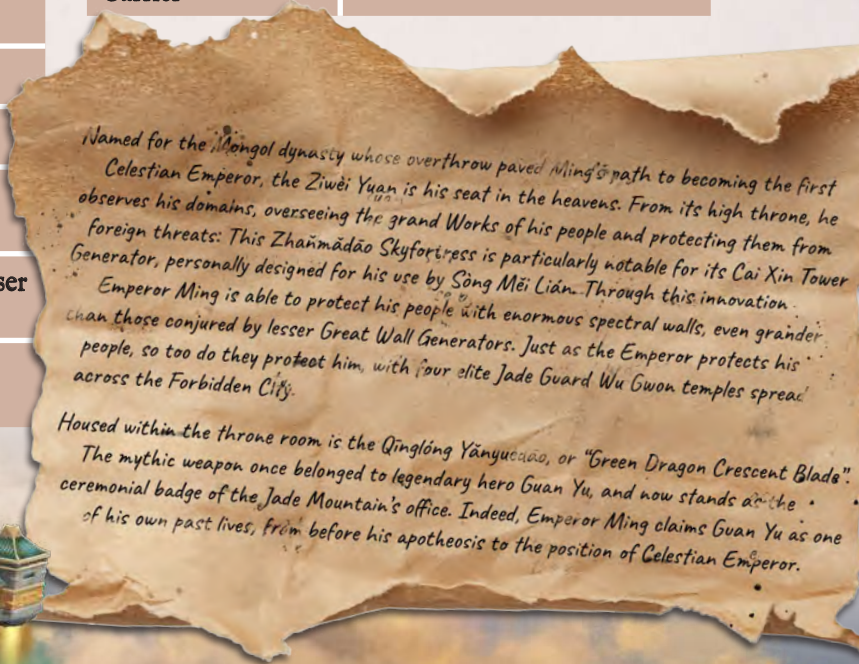 ser
Named for the Mongol dynasty whose overthrow paved Ming's path to becoming the first
Celestian Emperor, the Ziwèi Yuan is his seat in the heavens. From its high throne, he
observes his domains, overseeing the grand Works of his people and protecting them from
foreign threats: This Zhǎnmǎdāo Skyfortress is particularly notable for its Cai Xin Tower
Generator, personally designed for his use by Sòng Měi Lián. Through this innovation
Emperor Ming is able to protect his people with enormous spectral walls, even grander
than those conjured by lesser Great Wall Generators. Just as the Emperor protects his
people, so too do they protect him, with four elite Jade Guard Wu Gwon temples spread
across the Forbidden City.
Housed within the throne room is the Qīnglóng Yǎnyuèdāo, or "Green Dragon Crescent Blade".
The mythic weapon once belonged to legendary hero Guan Yu, and now stands as the
ceremonial badge of the Jade Mountain's office. Indeed, Emperor Ming claims Guan Yu as one
of his own past lives, from before his apotheosis to the position of Celestian Emperor.